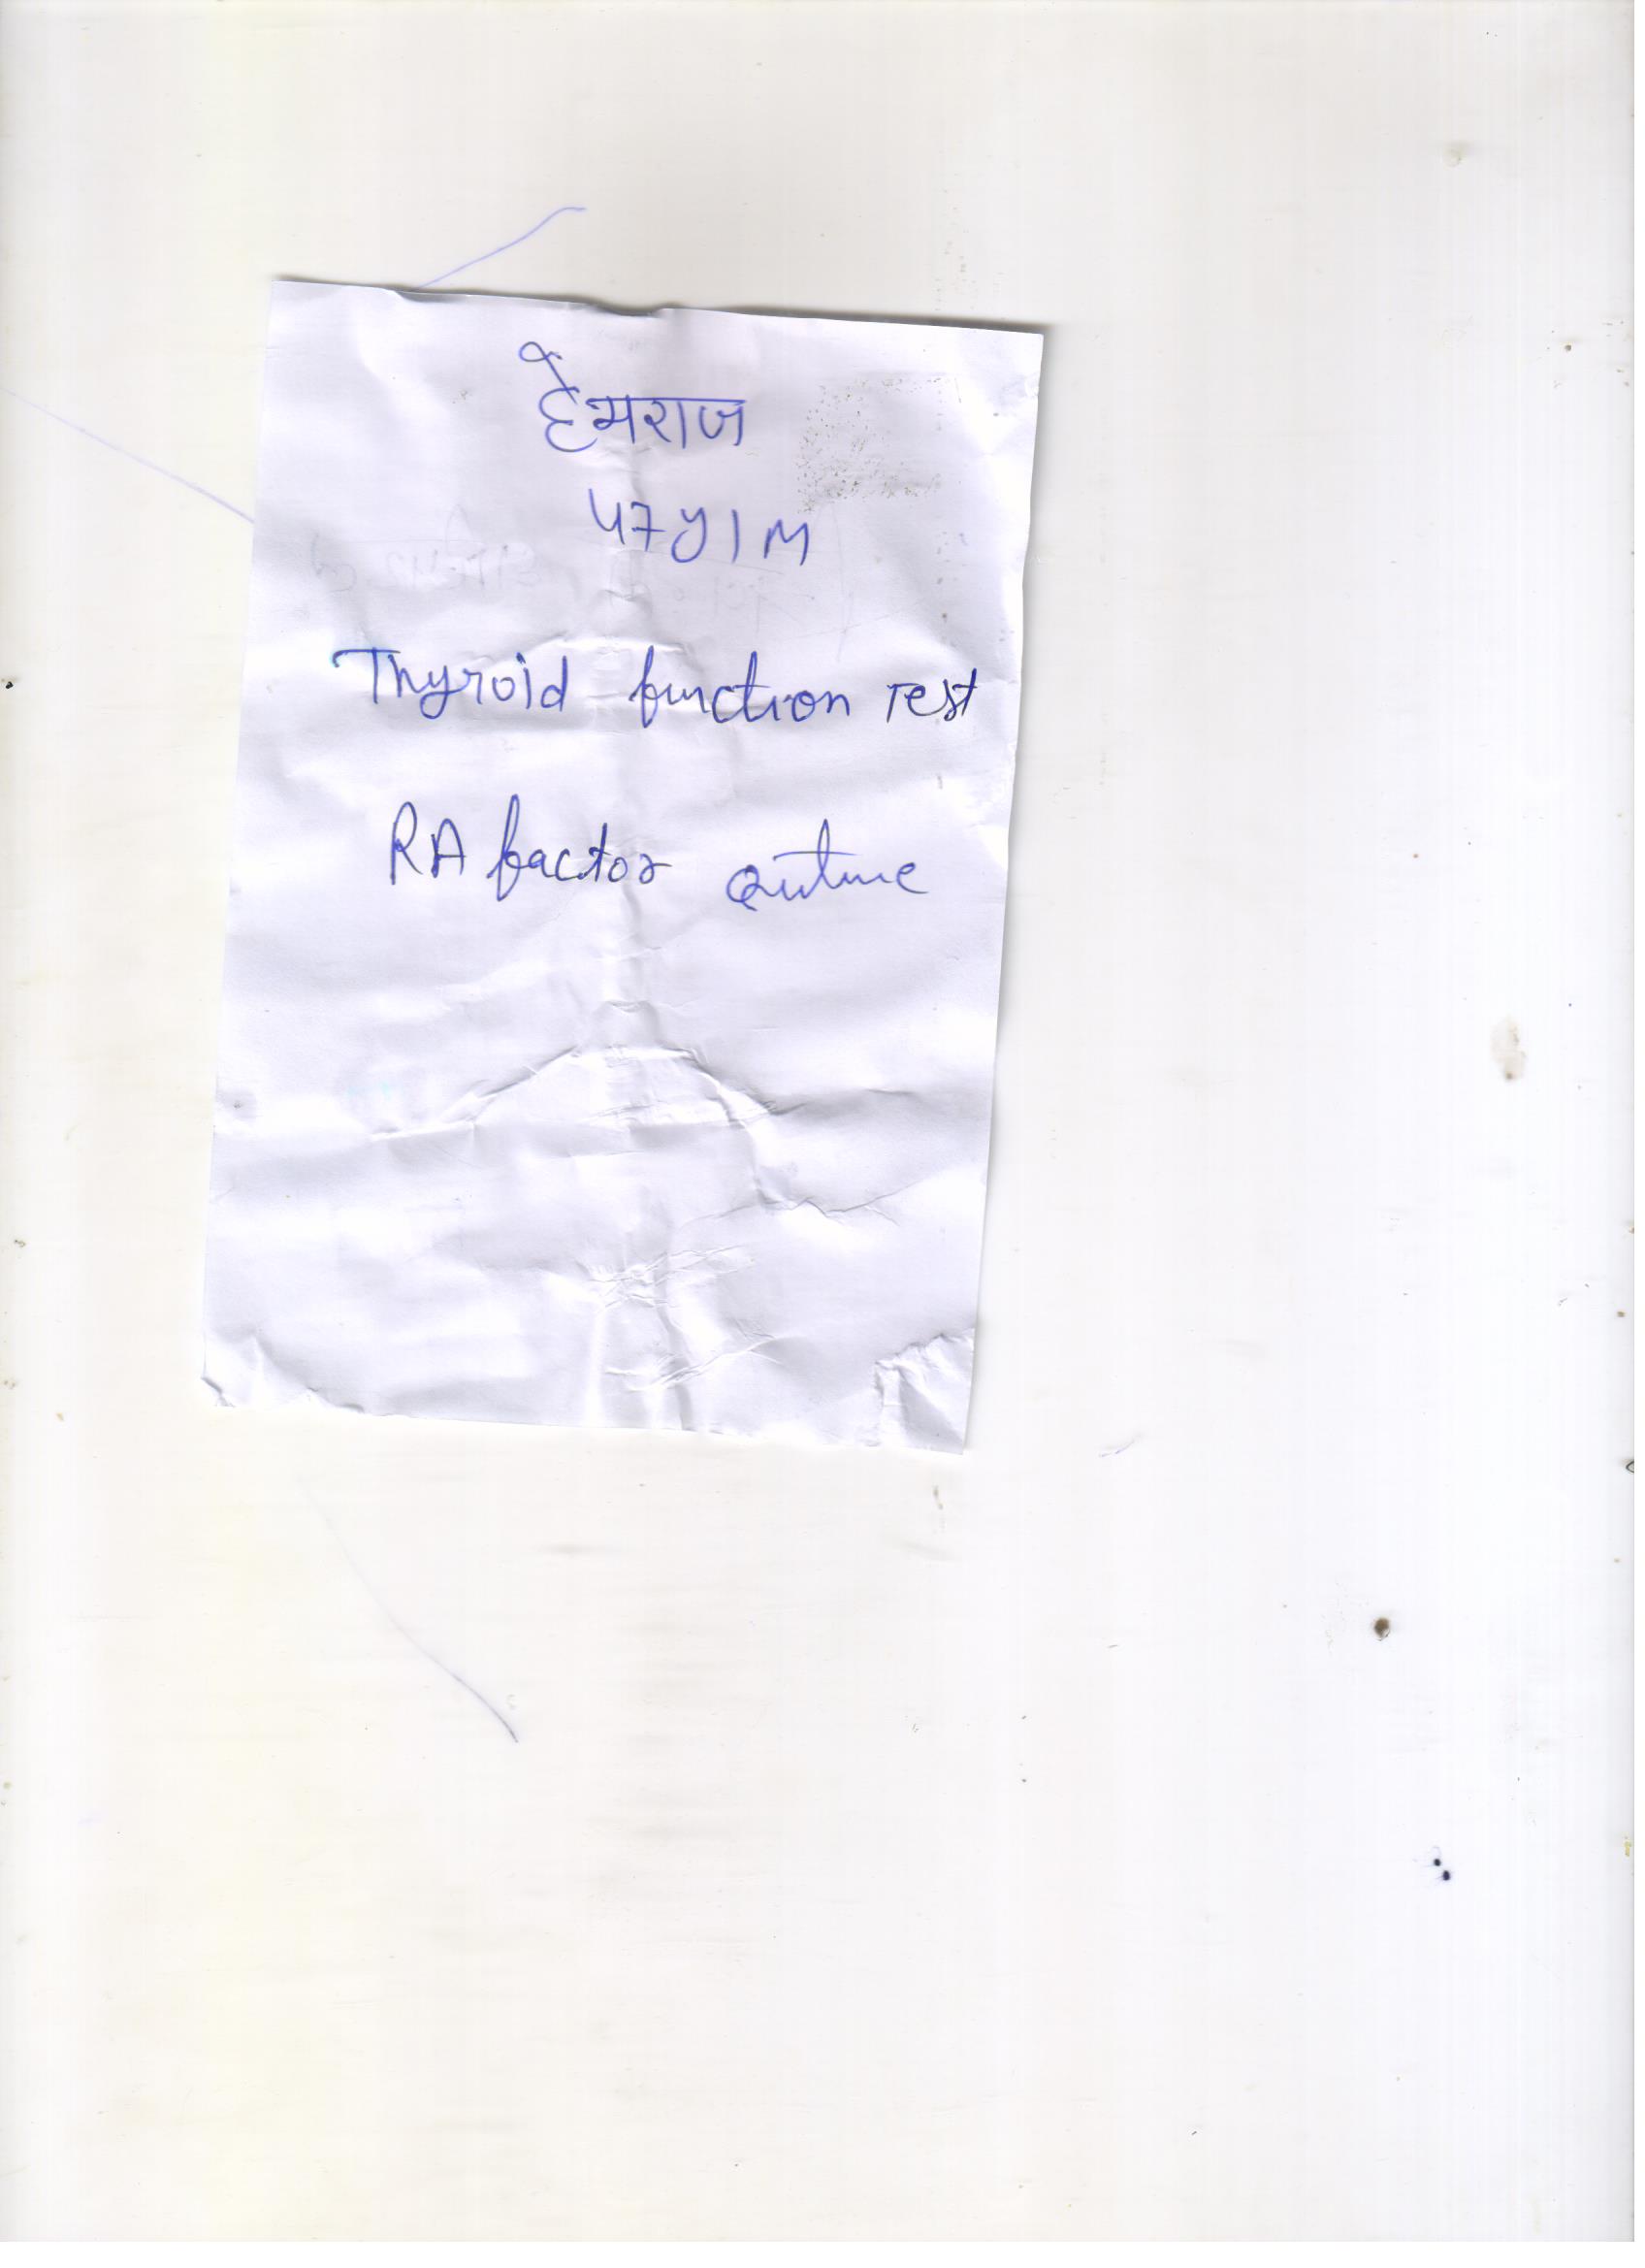 हेमराज
47Y/M
Thyroid function Test
RA factor